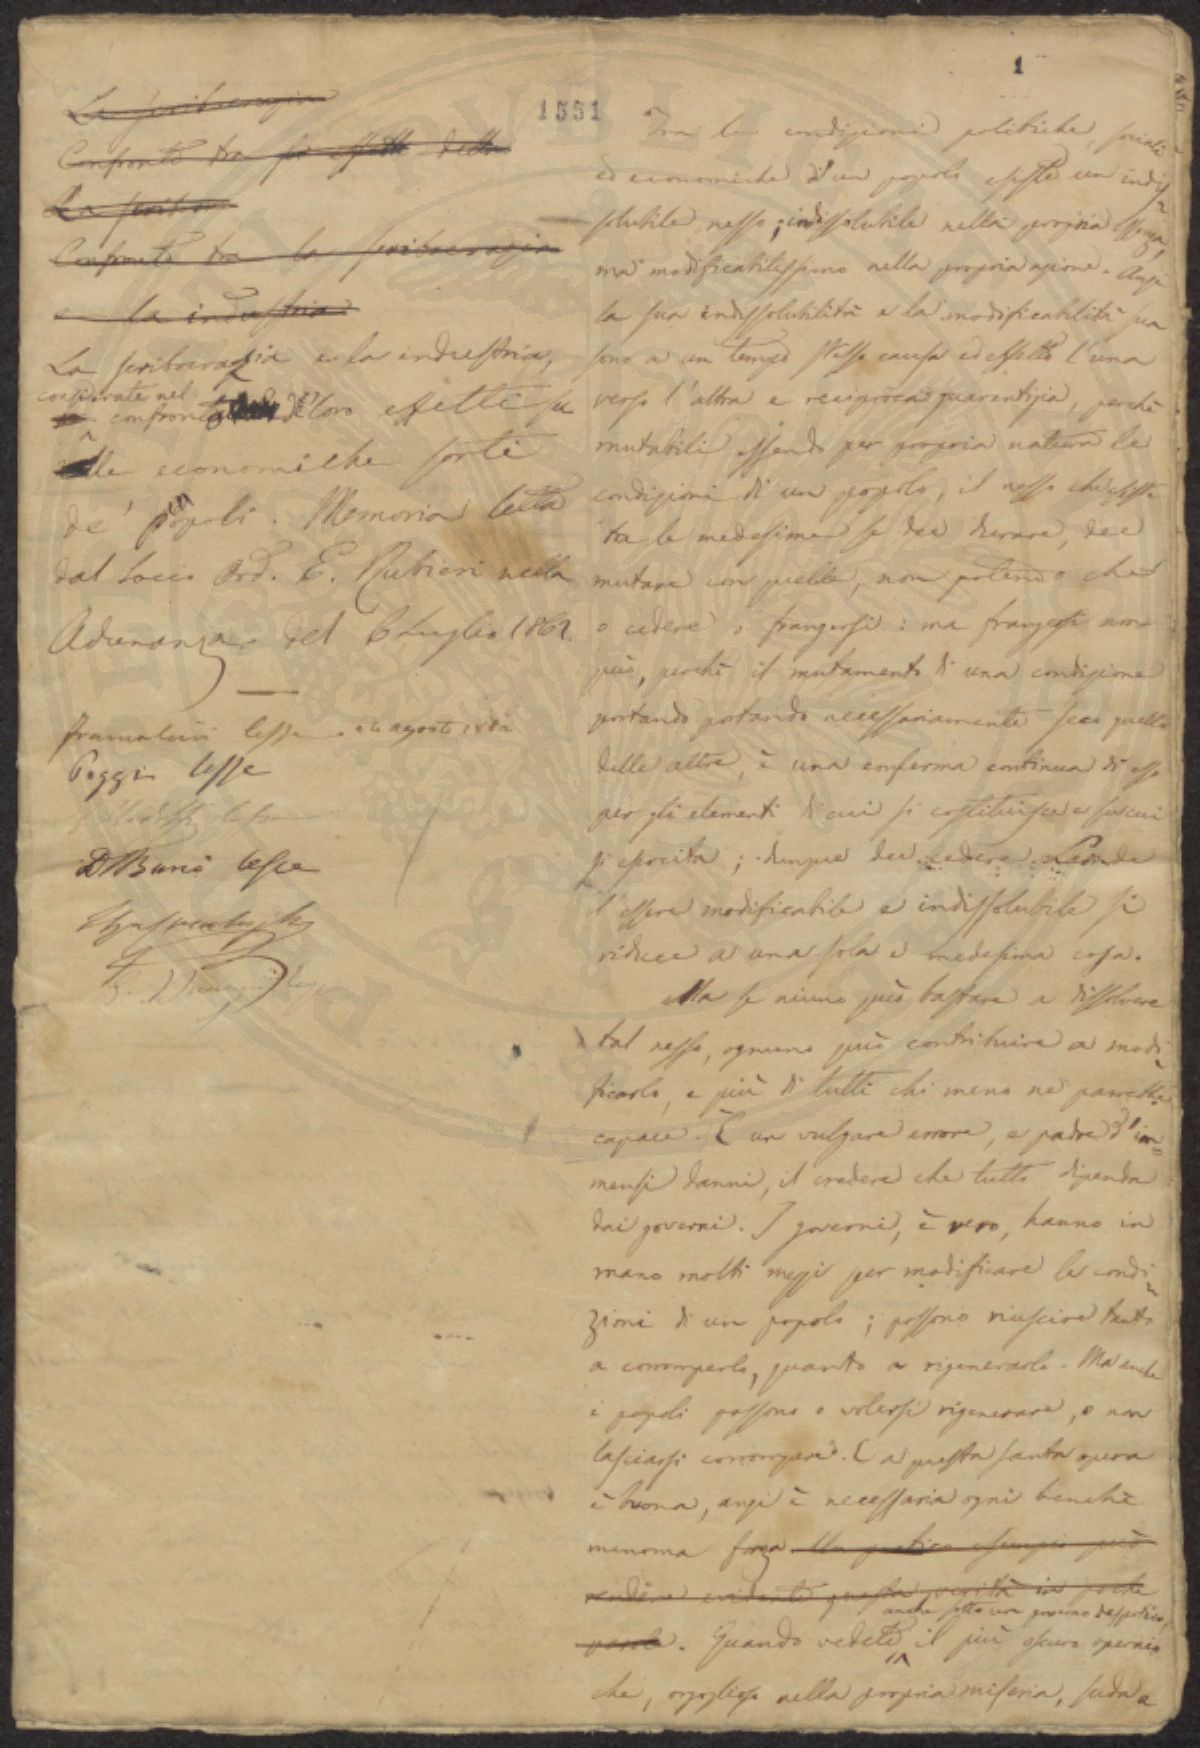 1
1551
La scribacrazia
Confronto tra gli effetti della
La scriba
Confronto tra la scribacrazia
e la industria
La scribocrazia e la industria,
considerate nel
confronto de' loro effetti su
lle economiche sorti
de' popoli. Memoria letta
dal Socio Ord. E. Rubieri nella
Adunanza del 6 Luglio 1862.
Franceschini lesse a 6 agosto 1862
Poggi lesse
lesse
D Bunò lesse
Tra le condizioni politiche, sociali
ed economiche d'un popolo esiste un indis
solubile nesso; indissolubile nella propria essenza,
ma modificabilissimo nella propria azione. Anzi
la sua indissolubilità e la modificabilità sua
sono a un tempo stesso causa ed effetto l'una
verso l'altra e reciproca guarentigia, perchè
mutabili essendo per propria natura le
condizioni di un popolo, il nesso che esiste
tra le medesime se dee durare, dee
mutare con quelle, non potendo che
o cedere o frangersi: ma frangersi non
può, perchè il mutamento di una condizione
portando portando necessariamente seco quello
delle altre, è una conferma continua di esso
per gli elementi di cui si costituisce e su cui
si esercita; dunque dee cedere. Laonde
l'essere modificabile e indissolubile si
riduce a una sola e medesima cosa.
Ma se niuno può bastare a dissolvere
tal nesso, ognuno può contribuire a modi
ficarlo, e più di tutti chi meno ne parrebbe
capace. È un vulgare errore, e padre d'im=
mensi danni, il credere che tutto dipenda
dai governi. I governi, è vero, hanno in
mano molti mezzi per modificare le condi
zioni di un popolo; possono riuscire tanto
a corromperlo, quanto a rigenerarlo. Ma anche
i popoli possono o volersi rigenerare, o non
lasciarsi corrompere. E a questa santa opera
è buona, anzi è necessaria ogni benchè
menoma forza. Un pratico esempio può
rendere evidente questa verità in poche
anche sotto un governo dispotico,
parole. Quando vedete il più oscuro operaio
che, orgoglioso nella propria miseria, suda e